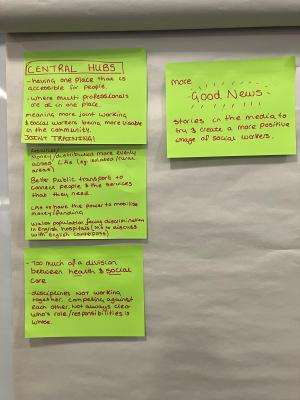 CENTRAL HUBS
- having one place that is
accessible for people.
- where multi-professionals
are all in one place.
meaning more joint working
& social workers being more visable
in the community.
JOINT TRAINING!
Resources/
Money distributed more evenly
across LAs (eg isolated/rural
areas)
Better public transport to
connect people & the services
that they need.
LAs to have the power to mobilise
money/funding
Wales population facing discrimination
in English hospitals (SWs to discuss
with English counterparts)
- Too much of a division
between health & social
care
- disciplines not working
together, competing against
each other. Not always clear
who's role/responsibilities is
whose.
more
Good News
stories in the media to
try & create a more positive
image of social workers.